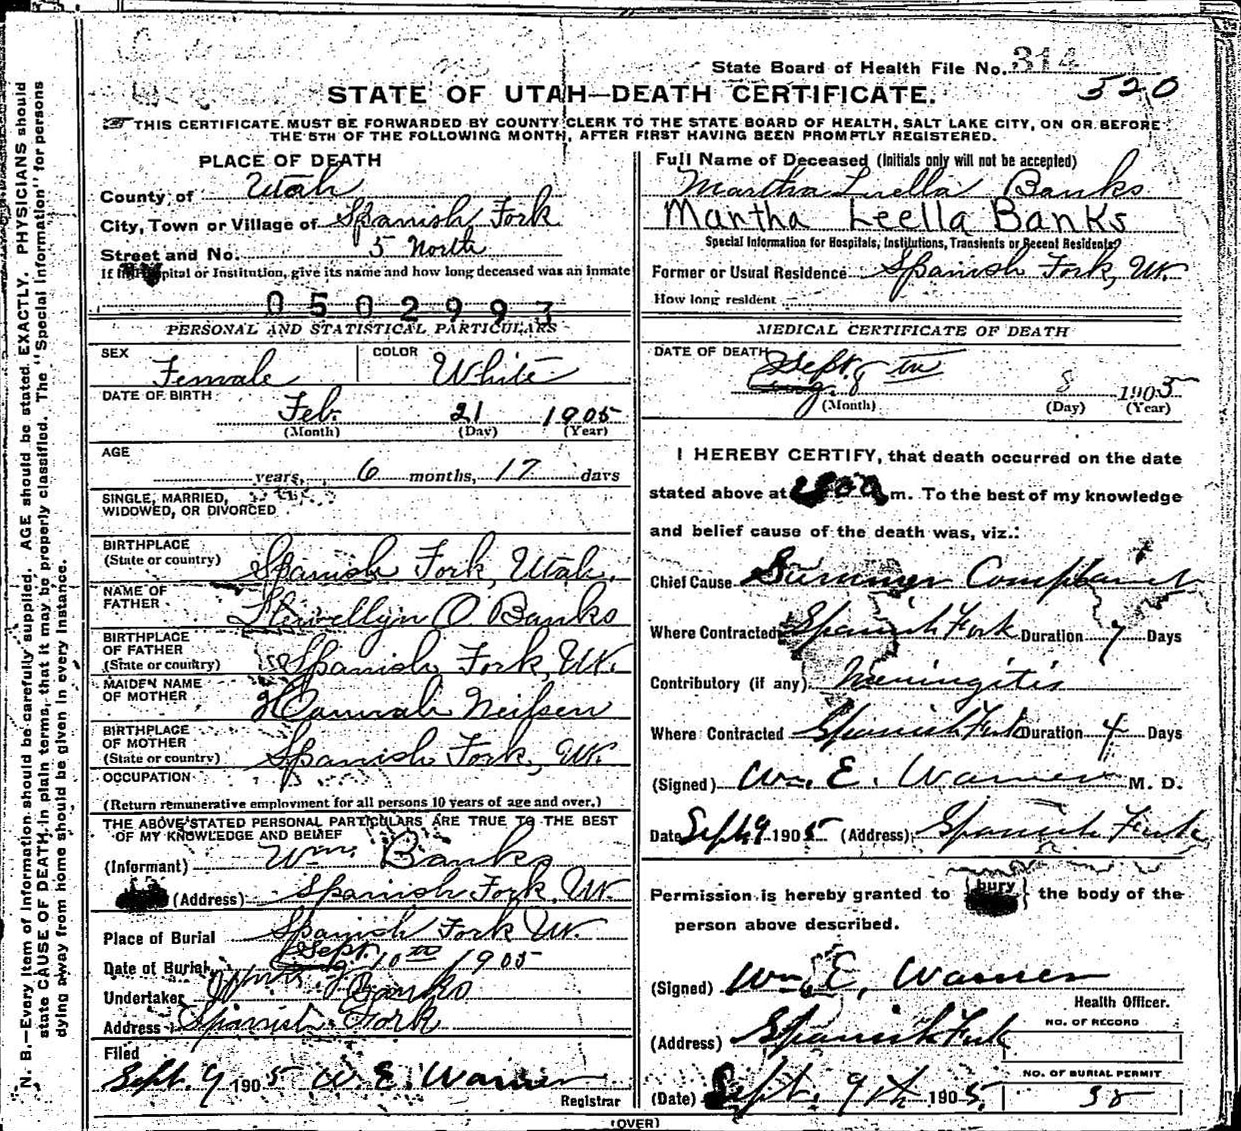 State Board of Health File No. 314
320
STATE OF UTAH—DEATH CERTIFICATE.
THIS CERTIFICATE MUST BE FORWARDED BY COUNTY CLERK TO THE STATE BOARD OF HEALTH, SALT LAKE CITY, ON OR BEFORE
THE 5TH OF THE FOLLOWING MONTH, AFTER FIRST HAVING BEEN PROMPTLY REGISTERED.
PLACE OF DEATH
County of Utah
City, Town or Village of Spanish Fork
Street and No. 5 North
If in Hospital or Institution, give its name and how long deceased was an inmate
0502997
PERSONAL AND STATISTICAL PARTICULARS
SEX Female COLOR White
DATE OF BIRTH
Feb. 21 1905
(Month) (Day) (Year)
AGE
years, 6 months, 17 days
SINGLE, MARRIED,
WIDOWED, OR DIVORCED
BIRTHPLACE
(State or country) Spanish Fork, Utah.
NAME OF
FATHER Llewellyn O Banks
BIRTHPLACE
OF FATHER
(State or country) Spanish Fork, Ut.
MAIDEN NAME
OF MOTHER Hannah Neilsen
BIRTHPLACE
OF MOTHER
(State or country) Spanish Fork, Ut.
OCCUPATION
(Return remunerative employment for all persons 10 years of age and over.)
THE ABOVE STATED PERSONAL PARTICULARS ARE TRUE TO THE BEST
OF MY KNOWLEDGE AND BELIEF
(Informant) Wm. Banks
(Address) Spanish Fork, Ut.
Place of Burial Spanish Fork Ut.
Date of Burial Sept. 10th 1905
Undertaker Banks
Address Spanish Fork
Filed
Sept. 9 1905 W. E. Warner
Registrar
Full Name of Deceased (Initials only will not be accepted)
Martha Luella Banks
Martha Leella Banks
Special Information for Hospitals, Institutions, Transients or Recent Residents?
Former or Usual Residence Spanish Fork, Ut.
How long resident
MEDICAL CERTIFICATE OF DEATH
DATE OF DEATH
Sept. 8th 8 1905
(Month) (Day) (Year)
I HEREBY CERTIFY, that death occurred on the date
stated above at m. To the best of my knowledge
and belief cause of the death was, viz.:
Chief Cause Summer Complaint
Where Contracted Spanish Fork Duration 7 Days
Contributory (if any) Meningitis
Where Contracted Spanish Fork Duration 4 Days
(Signed) Wm. E. Warner M. D.
Date Sept 9 1905 (Address) Spanish Fork
Permission is hereby granted to {bury} the body of the
person above described.
(Signed) Wm E. Warner
Health Officer.
(Address) Spanish Fork
NO. OF RECORD
NO. OF BURIAL PERMIT
38
(Date) Sept. 9th 1905.
(OVER)
N. B.—Every item of information should be carefully supplied. AGE should be stated EXACTLY. PHYSICIANS should
state CAUSE OF DEATH in plain terms, that it may be properly classified. The "Special Information" for persons
dying away from home should be given in every instance.